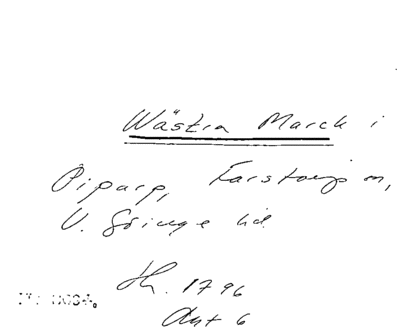 Wästra Marck i
Piparp, Farstorp sn,
V. Göinge hd.
Hh. 1796
Akt 6